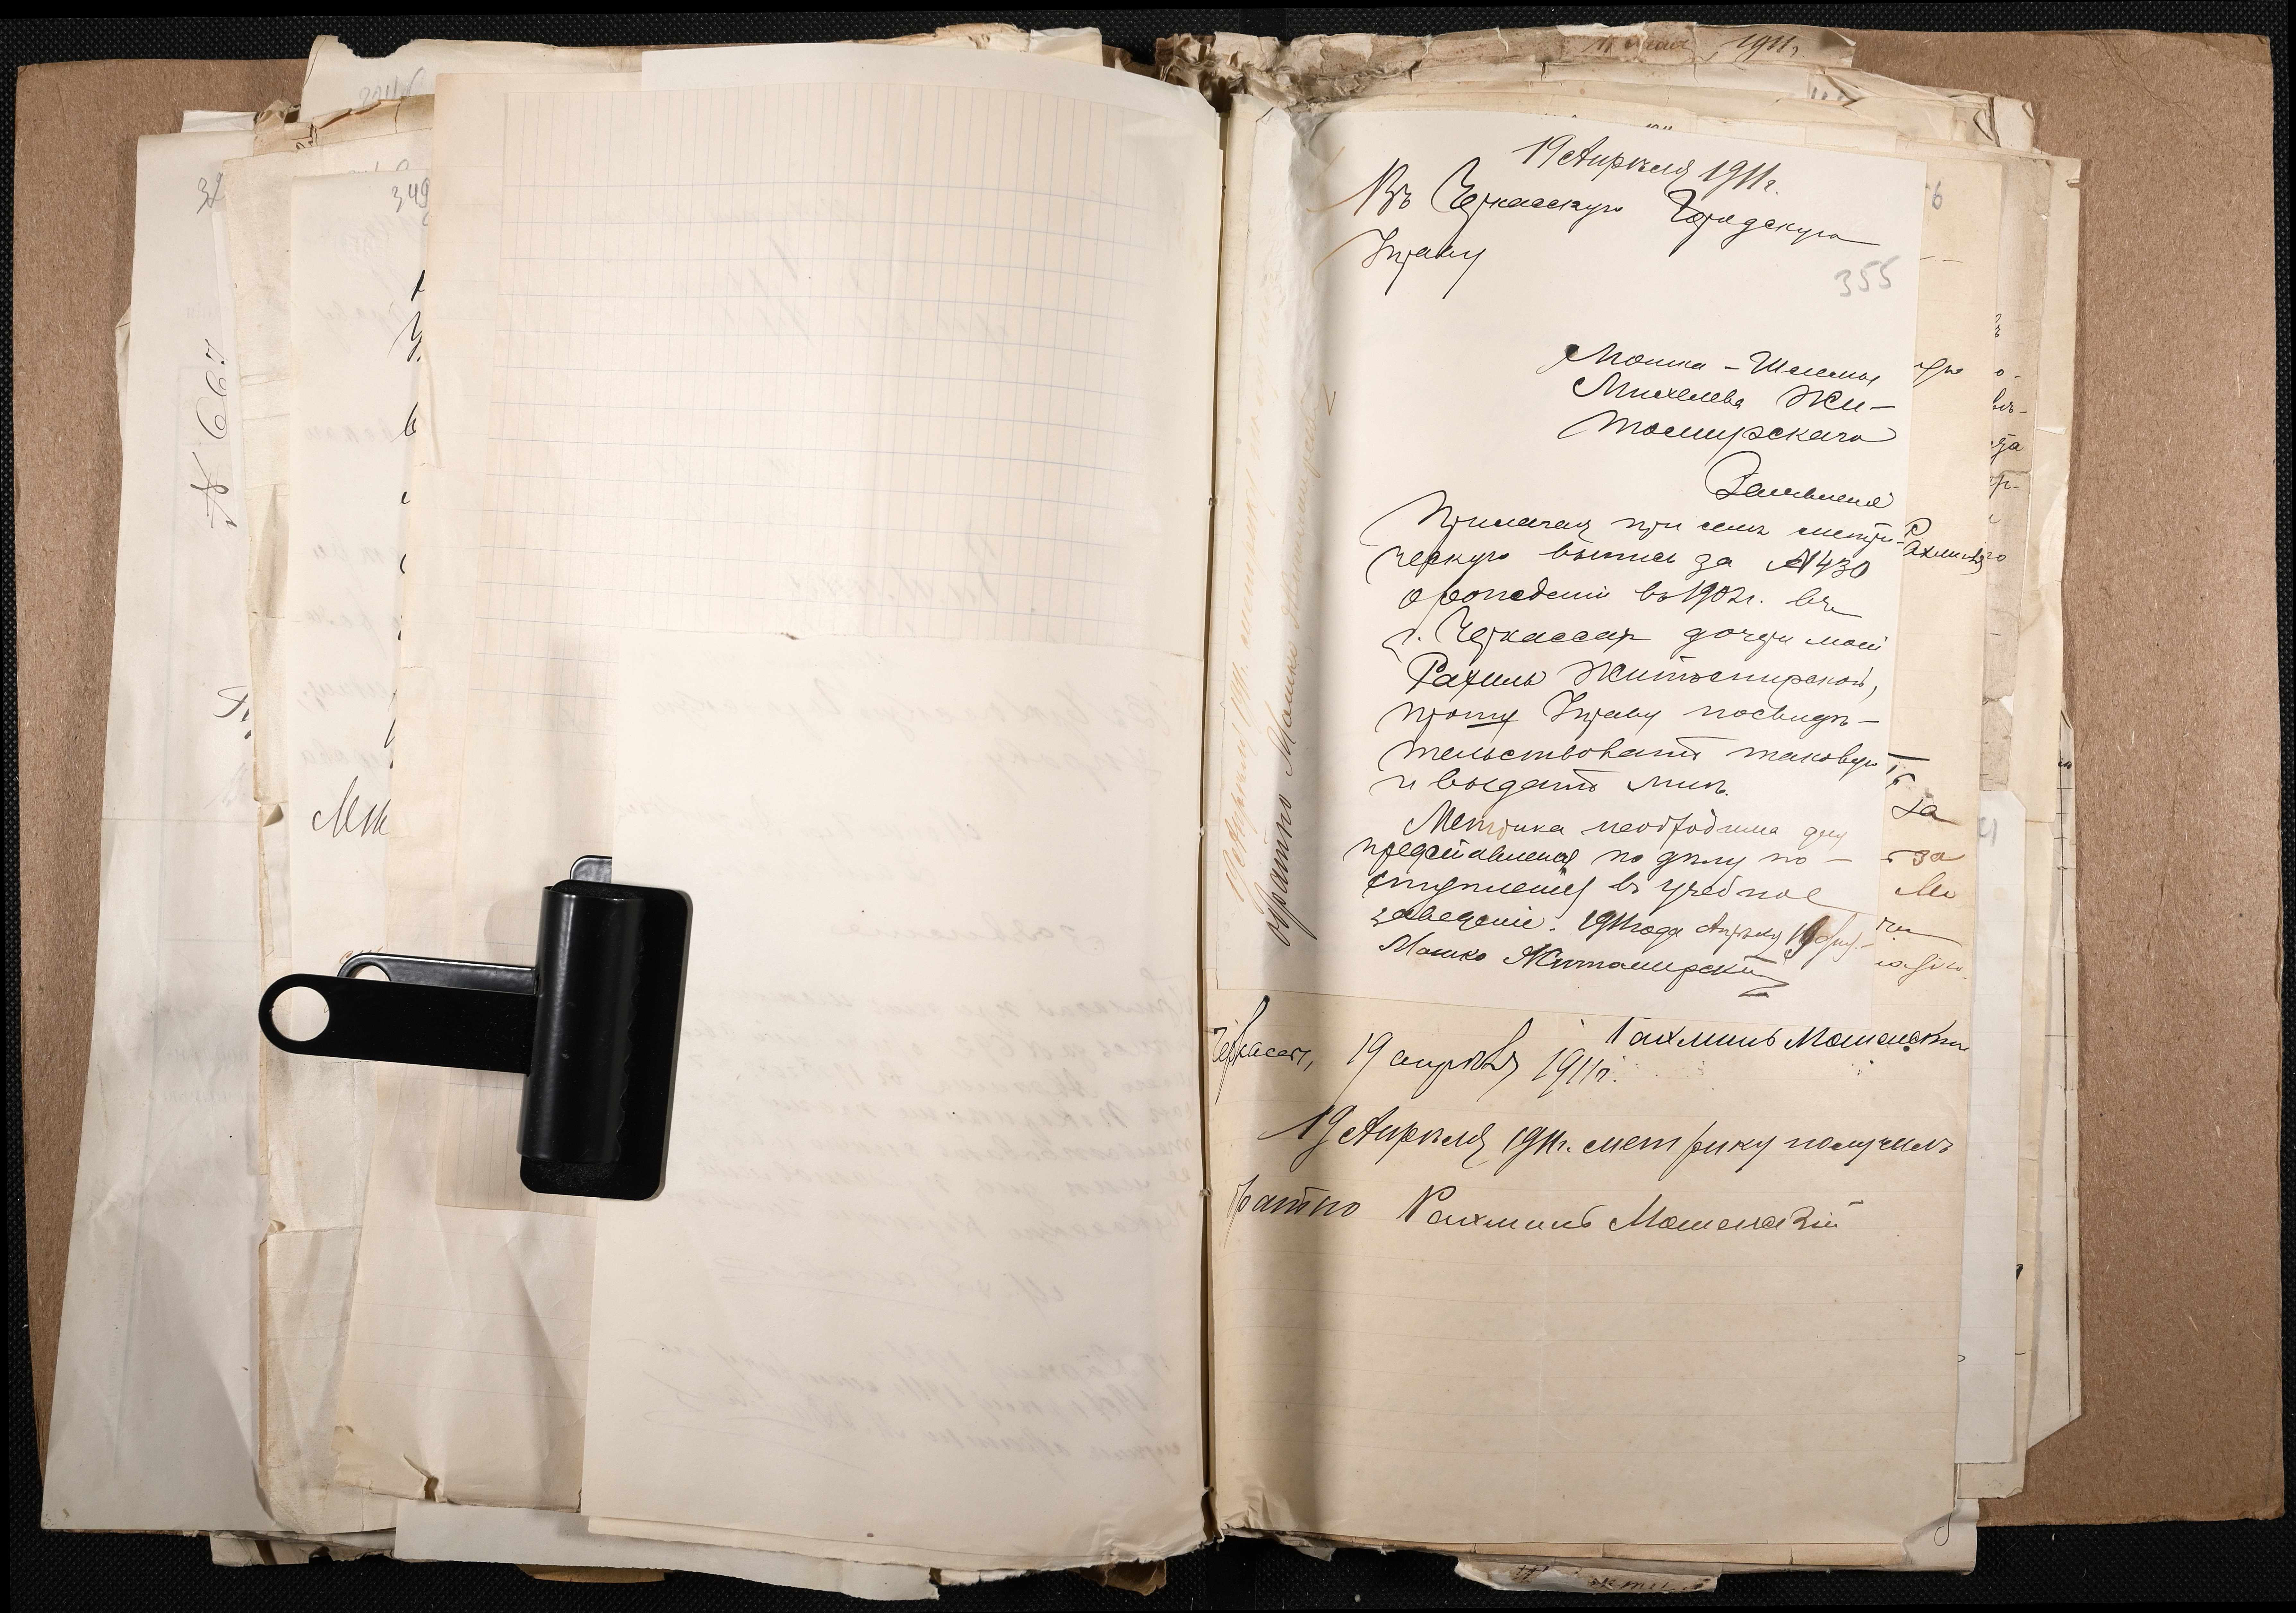 349
№ 667
19 Апрѣля 1911г.
Въ Черкасскую Городскую
Управу
355
Мошка-Шлемы
Михелева Жи-
томирскаго
Заявленіе
Прилагая при семъ метри-
ческую выпись за №430
о рожденіи въ 1902г. въ
г. Черкассах дочери моей
Рахиль Житомирской,
прошу Управу посвидѣ-
тельствовать таковую
и выдать мнѣ.
Метрика необходима для
представленія по дѣлу по-
ступленія въ учебное
заведеніе. 1911 года Апрѣля 19 дня.
Мошко Житомирскій
19 Апрѣля 1911г. метрику получилъ
обратно Мошко Житомирскій
Черкассы, 19 апрѣля 1911г.
Рахмиль Мошенскій
19 Апрѣля 1911г. метрику получилъ
братно Рахмиль Мошенскій